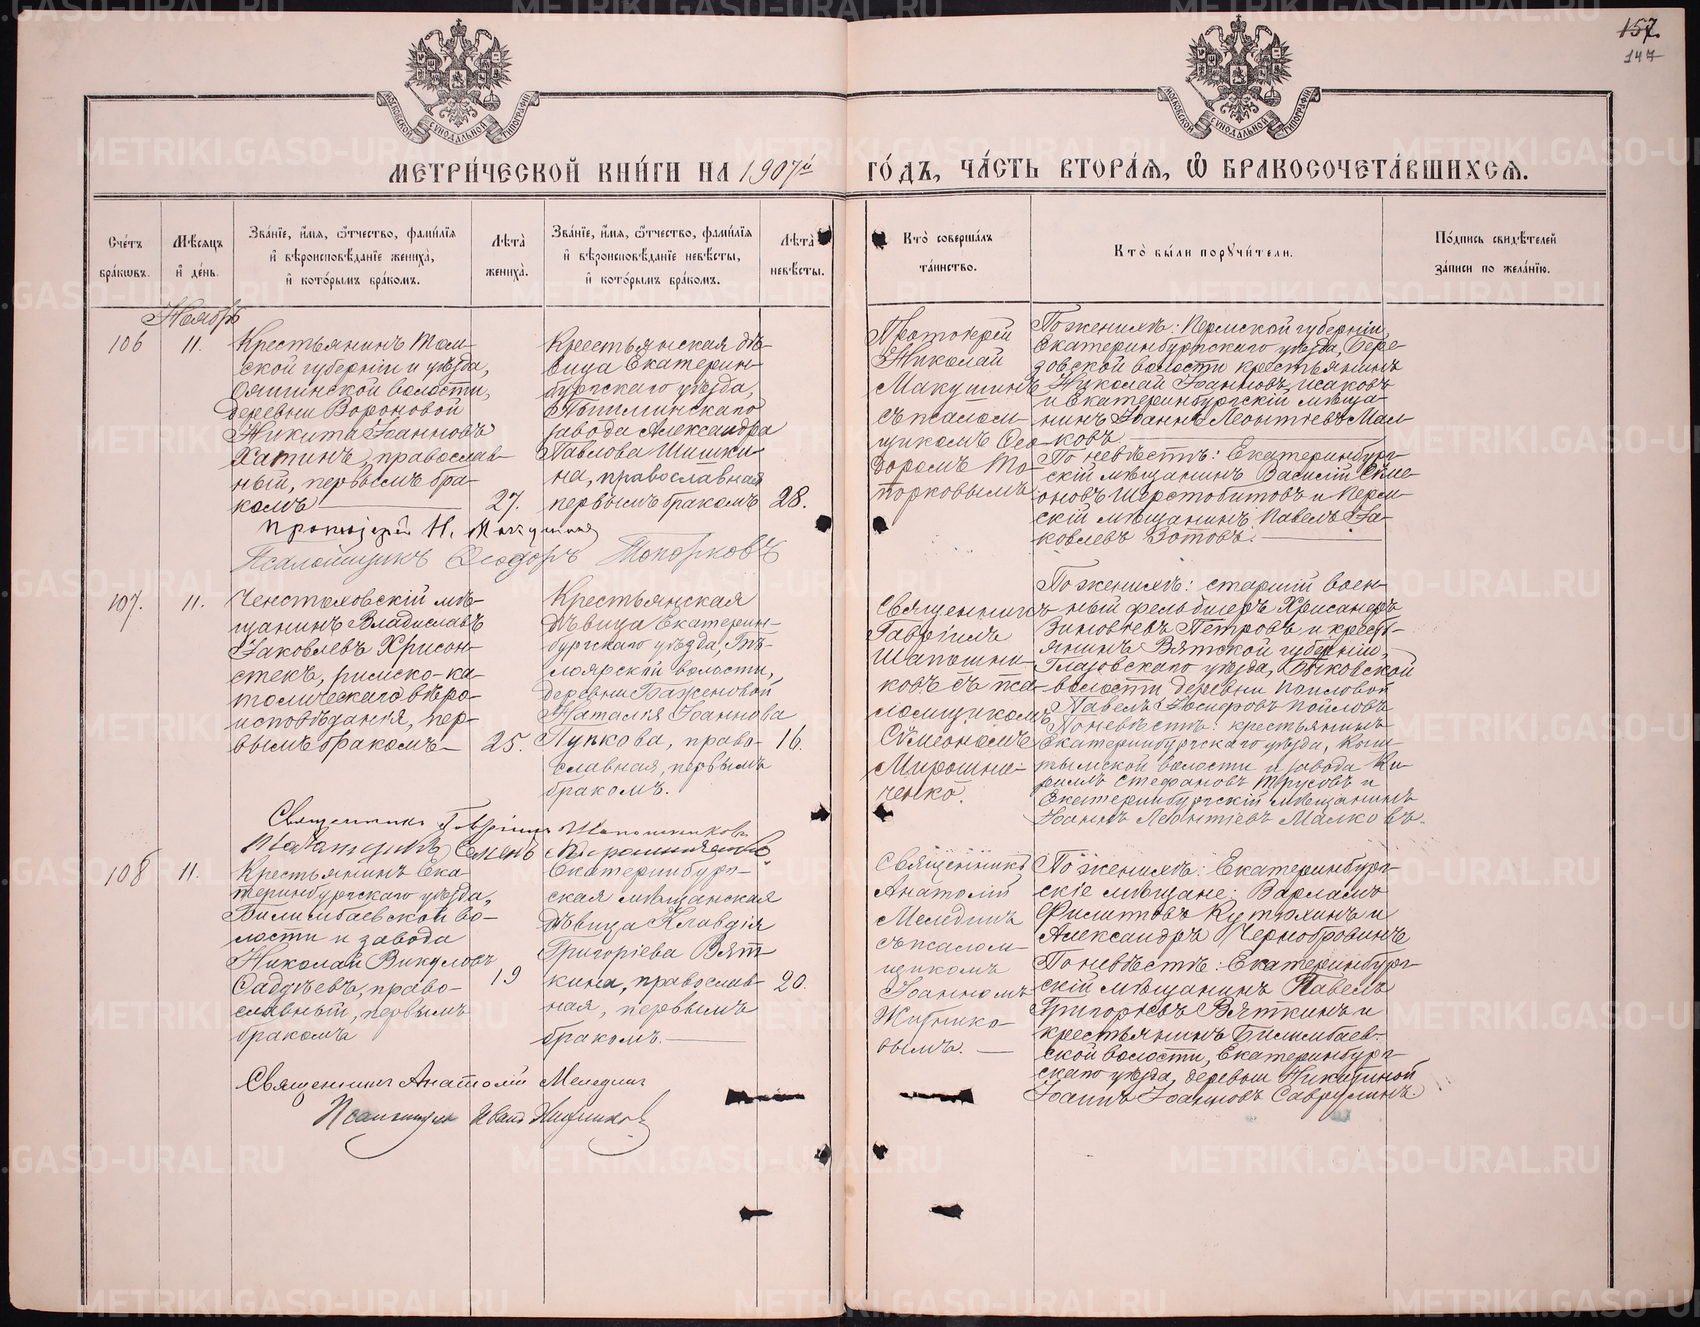 157.
147
МЕТРИ́ЧЕСКОЙ КНИ́ГИ НА 1907й ГО́ДЪ, ЧА́СТЬ ВТОРА́Я, Ѽ БРАКОСОЧЕТА́ВШИХСЯ.
Сче́тъ бра́кωвъ.
Мѣ́сяцъ и҆ де́нь.
Зва́нїе, и҆́мя, ѻ҆́тчество, фами́лїя
и҆ вѣроисповѣ́данїе жениха̀,
и҆ кото́рымъ бра́комъ.
Лѣта̀ жениха̀.
Зва́нїе, и҆́мя, ѻ҆́тчество, фами́лїя
и҆ вѣроисповѣ́данїе невѣ́сты,
и҆ кото́рымъ бра́комъ.
Лѣта̀ невѣ́сты.
Кто̀ соверша́лъ та́инство.
Кто̀ бы́ли порꙋчи́тели.
По́дпись свидѣ́телей
за́писи по жела́нїю.
Ноябрь
106
11.
Крестьянинъ Том-
ской губерніи и уѣзда,
Ояшинской волости,
деревни Вороновой
Никита Іоанновъ
Хатинъ, православ-
ный, первымъ бра-
комъ
27.
Крестьянская дѣ-
вица Екатерин-
бургскаго уѣзда,
Пышминскаго
завода Александра
Павлова Шишки-
на, православная
первымъ бракомъ
28.
Протоіерей
Николай
Макушинъ
съ псалом-
щикомъ Ѳео-
доромъ То-
порковымъ
По женихѣ: Пермской губерніи,
Екатеринбургскаго уѣзда, Бере-
зовской волости крестьянинъ
Николай Іоанновъ Исаковъ
и Екатеринбургскій мѣща-
нинъ Іоаннъ Леонтіевъ Мал-
ковъ
По невѣстѣ: Екатеринбург-
скій мѣщанинъ Василій Сѵме-
оновъ Шерстобитовъ и Перм-
скій мѣщанинъ Павелъ Іа-
ковлевъ Зотовъ.
Протоіерей Н. Макушинъ
Псаломщикъ Ѳеодоръ Топорковъ
107.
11.
Ченстоховскій мѣ-
щанинъ Владиславъ
Іаковлевъ Хрисон-
стекъ, римско-ка-
толическаго вѣро-
исповѣданія, пер-
вымъ бракомъ
25.
Крестьянская
дѣвица Екатерин-
бургскаго уѣзда, Бѣ-
лоярской волости,
деревни Баженовой
Наталія Іоаннова
Пупкова, право-
славная, первымъ
бракомъ.
16.
Священникъ
Гавріилъ
Шапошни-
ковъ съ пса-
ломщикомъ
Сѵмеономъ
Мирошни-
ченко.
По женихѣ: старшій воен-
ный фельдшеръ Хрисанѳъ
Зиновіевъ Петровъ и кресть-
янинъ Вятской губерніи,
Глазовскаго уѣзда,
волости деревни Поиловой
Павелъ Іосифовъ Поиловъ
По невѣстѣ: крестьянинъ
Екатеринбургскаго уѣзда, Кыш-
тымской волости и завода Ки-
риллъ Стефановъ Трусовъ и
Екатеринбургскій мѣщанинъ
Іоаннъ Леонтіевъ Малковъ.
Священникъ Гавріилъ Шапошниковъ
Псаломщикъ Семенъ Мирошниченко
108
11.
Крестьянинъ Ека-
теринбургскаго уѣзда,
Билимбаевской во-
лости и завода
Николай Викуловъ
Садѣевъ, право-
славный, первымъ
бракомъ
19
Екатеринбург-
ская мѣщанская
дѣвица Клавдія
Григоріева Вят-
кина, православ-
ная, первымъ
бракомъ.
20.
Священникъ
Анатолій
Меледин
съ псалом-
щикомъ
Іоанномъ
Жибнико-
вымъ.
По женихѣ: Екатеринбург-
скіе мѣщане: Варлаамъ
Филитовъ Кутюхинъ и
Александръ Чернобровинъ
По невѣстѣ: Екатеринбург-
скій мѣщанинъ Павелъ
Григорьевъ Вяткинъ и
крестьянинъ Билимбаев-
ской волости, Екатеринбург-
скаго уѣзда, деревни Никитиной
Іоаннъ Іоанновъ Саврулинъ
Священникъ Анатолій Меледин
Псаломщикъ Иванъ